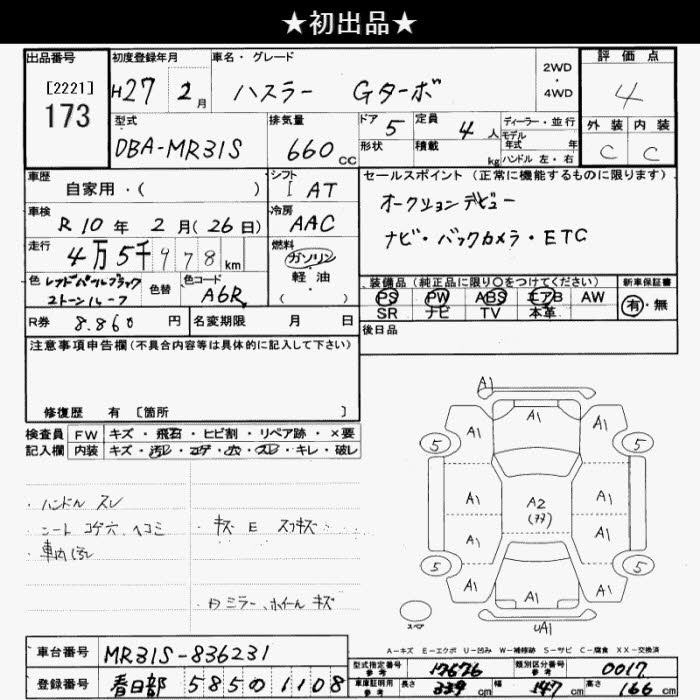 ★初出品★
出品番号 初度登録年月 車名・グレード 2WD・4WD 評価点
[2221] 173 H27 2月 ハスラー Gターボ 4
型式 排気量 ドア 5 定員 4人 ディーラー・並行 外装 内装
DBA-MR31S 660cc 形状 積載 kg モデル年式 年 ハンドル 左・右 C C
車歴 シフト セールスポイント (正常に機能するものに限ります)
自家用・( ) I AT オークションデビュー
車検 冷房
R10年 2月(26日) AAC ナビ・バックカメラ・ETC
走行 燃料
4万5千978km ガソリン
軽油
( )
色 レッドパールブラック 2トーンルーフ 色替 色コード A6R
装備品 (純正品に限り○をつけてください) 新車保証書
PS PW ABS エアB AW 有・無
SR ナビ TV 本革
R券 8.860円 名変期限 月 日 後日品
注意事項申告欄(不具合内容等は具体的に記入して下さい)
修復歴 有 [箇所 ]
検査員 FW キズ・飛石・ヒビ割・リペア跡・×要
記入欄 内装 キズ・汚レ・コゲ・穴・スレ・キレ・破レ
・ハンドル スレ
・シート コゲ穴 ヘコミ
・車内汚レ
・キズ E スリキズ
・ミラー、ホイール キズ
A1
A1
A1 A1
5 5
A1 A2 A1
A1 A1
5 5
A1 A1 A1
スペア
A1
A-キズ E-エクボ U-凹み W-補修跡 S-サビ C-腐食 XX-交換済
車台番号 MR31S-836231
登録番号 春日部 585 の 1108
型式指定番号 参考 17676 類別区分番号 参考 0017
車庫証明用 参考 長さ 339cm 幅 147cm 高さ 166cm